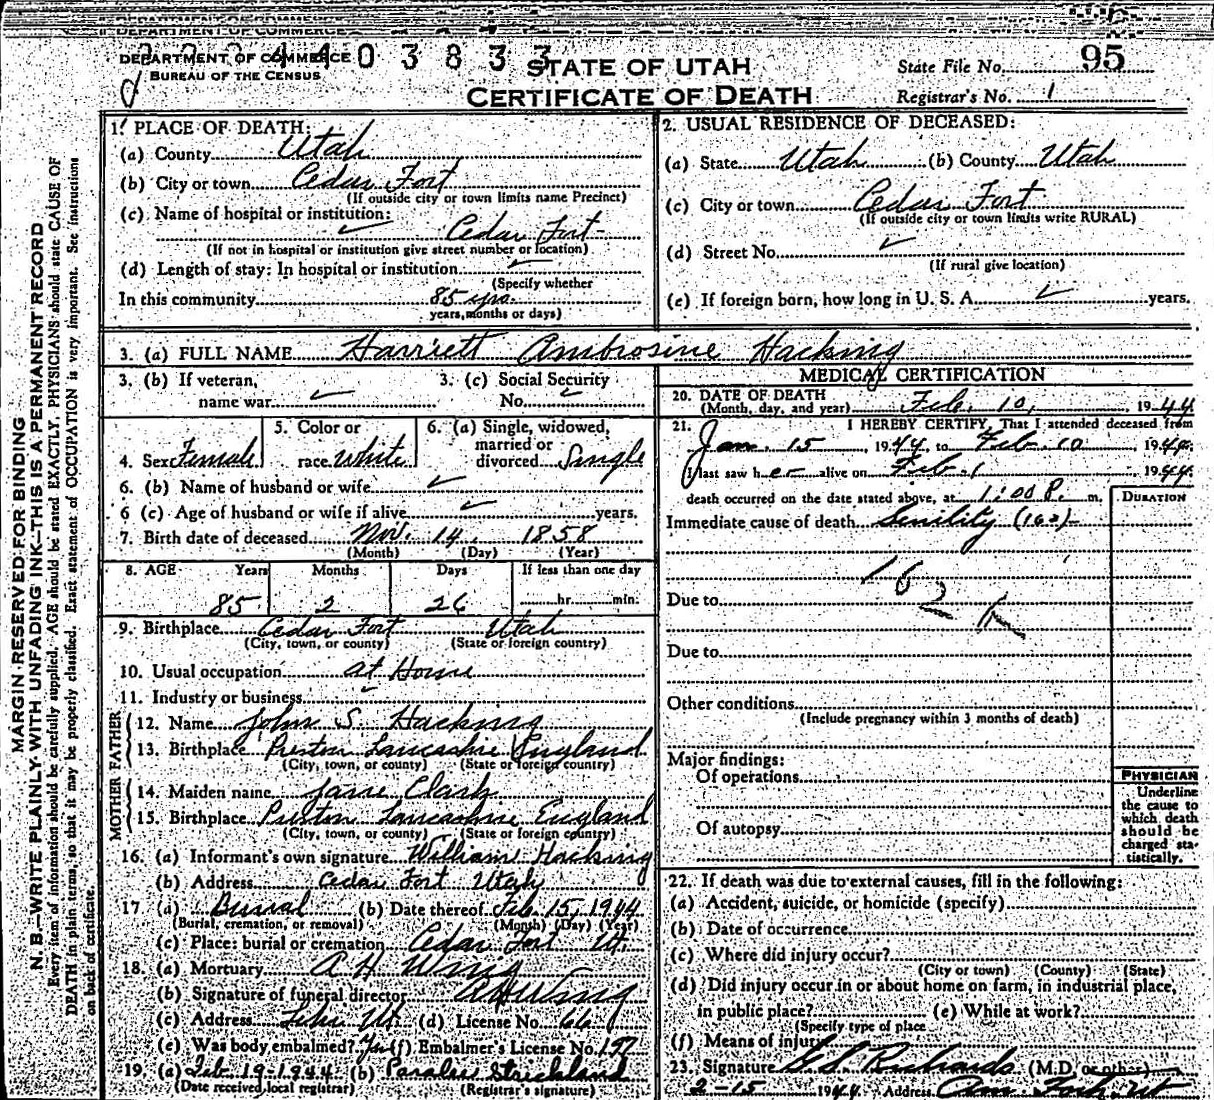 DEPARTMENT OF COMMERCE
BUREAU OF THE CENSUS
STATE OF UTAH
CERTIFICATE OF DEATH
State File No. 95
Registrar's No. 1
1. PLACE OF DEATH:
(a) County Utah
(b) City or town Cedar Fort
(If outside city or town limits name Precinct)
(c) Name of hospital or institution:
Cedar Fort
(If not in hospital or institution give street number or location)
(d) Length of stay: In hospital or institution
(Specify whether
In this community 85 yrs.
years, months or days)
2. USUAL RESIDENCE OF DECEASED:
(a) State Utah (b) County Utah
(c) City or town Cedar Fort
(If outside city or town limits write RURAL)
(d) Street No.
(If rural give location)
(e) If foreign born, how long in U. S. A. years.
3. (a) FULL NAME Harriett Ambrosine Hacking
3. (b) If veteran, name war
3. (c) Social Security No.
4. Sex Female
5. Color or race White
6. (a) Single, widowed, married or divorced Single
6. (b) Name of husband or wife
6 (c) Age of husband or wife if alive years.
7. Birth date of deceased Nov. 14 1858
(Month) (Day) (Year)
8. AGE Years Months Days If less than one day
85 2 26 hr. min.
9. Birthplace Cedar Fort Utah
(City, town, or county) (State or foreign country)
10. Usual occupation at Home
11. Industry or business
FATHER
12. Name John S. Hacking
13. Birthplace Preston Lancashire England
(City, town, or county) (State or foreign country)
MOTHER
14. Maiden name Jane Clark
15. Birthplace Preston Lancashire England
(City, town, or county) (State or foreign country)
16. (a) Informant's own signature William Hacking
(b) Address Cedar Fort Utah
17 (a) Burial (b) Date thereof Feb. 15, 1944
(Burial, cremation, or removal) (Month) (Day) (Year)
(c) Place: burial or cremation Cedar Fort Ut.
18. (a) Mortuary A H Wing
(b) Signature of funeral director A H Wing
(c) Address Lehi Ut. (d) License No. 66
(e) Was body embalmed? Yes (f) Embalmer's License No. 197
19. (a) Feb. 19-1944 (b) Strickland
(Date received local registrar) (Registrar's signature)
MEDICAL CERTIFICATION
20. DATE OF DEATH
(Month, day, and year) Feb. 10, 1944
21. I HEREBY CERTIFY, That I attended deceased from
Jan. 15, 1944, to Feb. 10 1944.
I last saw her alive on Feb. 1 1944.
death occurred on the date stated above, at 1:00 P. m.
DURATION
Immediate cause of death Senility (162)
162
Due to
Due to
Other conditions
(Include pregnancy within 3 months of death)
Major findings:
Of operations
Of autopsy
PHYSICIAN
Underline
the cause to
which death
should be
charged sta-
tistically.
22. If death was due to external causes, fill in the following:
(a) Accident, suicide, or homicide (specify)
(b) Date of occurrence
(c) Where did injury occur?
(City or town) (County) (State)
(d) Did injury occur in or about home on farm, in industrial place,
in public place? (e) While at work?
(Specify type of place
(f) Means of injury
23. Signature G. S. Richards (M.D. or other)
2-15 1944 Address Am Fork, Ut
MARGIN RESERVED FOR BINDING
N. B.—WRITE PLAINLY WITH UNFADING INK—THIS IS A PERMANENT RECORD
Every item of information should be carefully supplied. AGE should be stated EXACTLY. PHYSICIANS should state CAUSE OF
DEATH in plain terms, so that it may be properly classified. Exact statement of OCCUPATION is very important. See instructions
on back of certificate.